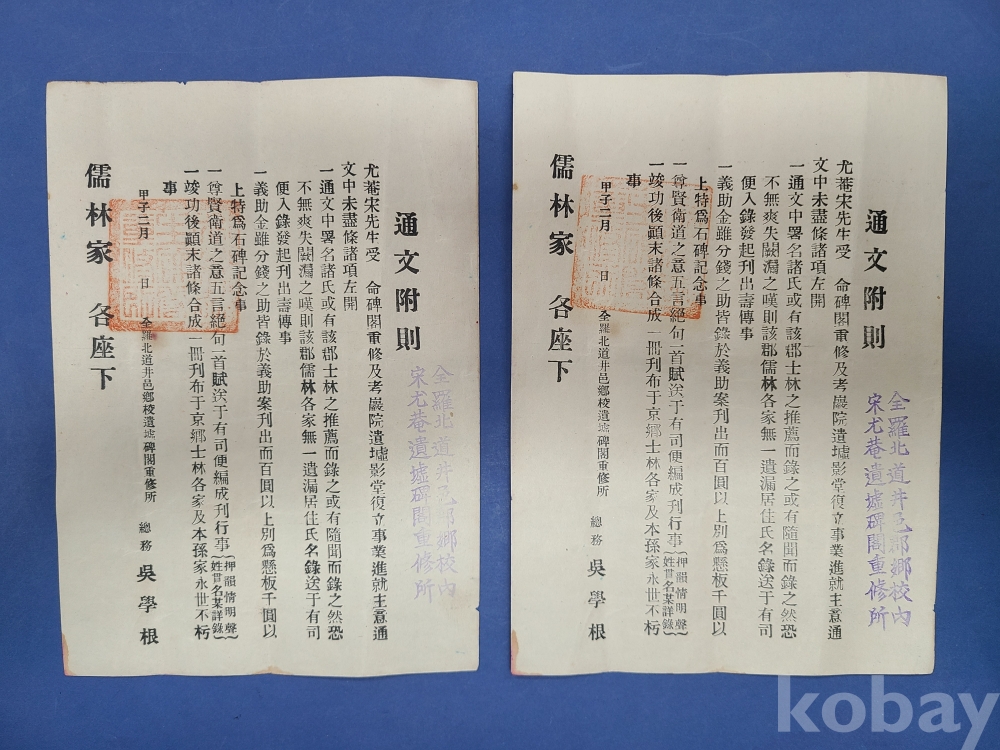 全羅北道井邑郡鄉校內
宋尤菴遺墟碑閣重修所
通文附則
尤菴宋先生受 命碑閣重修及考巖院遺墟影堂復立事業進就主意通
文中未盡條諸項左開
一通文中署名諸氏或有該郡士林之推薦而錄之或有隨聞而錄之然恐
不無爽失闕漏之嘆則該郡儒林各家無一遺漏居住氏名錄送于有司
便入錄發起刊出壽傳事
一義助金雖分錢之助皆錄於義助案刊出而百圓以上別爲懸板千圓以
上特爲石碑記念事
一尊賢衛道之意五言絶句一首賦送于有司便編成刊行事
押韻情明聲
姓貫名某詳錄
一竣功後顚末諸條合成一冊刊布于京鄉士林各家及本孫家永世不朽
事
甲子二月 日 全羅北道井邑鄉校遺墟碑閣重修所 總務 吳學根
儒林家 各座下
通文附則
全羅北道井邑郡鄉校內
宋尤菴遺墟碑閣重修所
尤菴宋先生受 命碑閣重修及考巖院遺墟影堂復立事業進就主意通
文中未盡條諸項左開
一通文中署名諸氏或有該郡士林之推薦而錄之或有隨聞而錄之然恐
不無爽失闕漏之嘆則該郡儒林各家無一遺漏居住氏名錄送于有司
便入錄發起刊出壽傳事
一義助金雖分錢之助皆錄於義助案刊出而百圓以上別爲懸板千圓以
上特爲石碑記念事
一尊賢衛道之意五言絶句一首賦送于有司便編成刊行事
押韻情明聲
姓貫名某詳錄
一竣功後顚末諸條合成一冊刊布于京鄉士林各家及本孫家永世不朽
事
甲子二月 日 全羅北道井邑鄉校遺墟碑閣重修所 總務 吳學根
儒林家 各座下
kobay